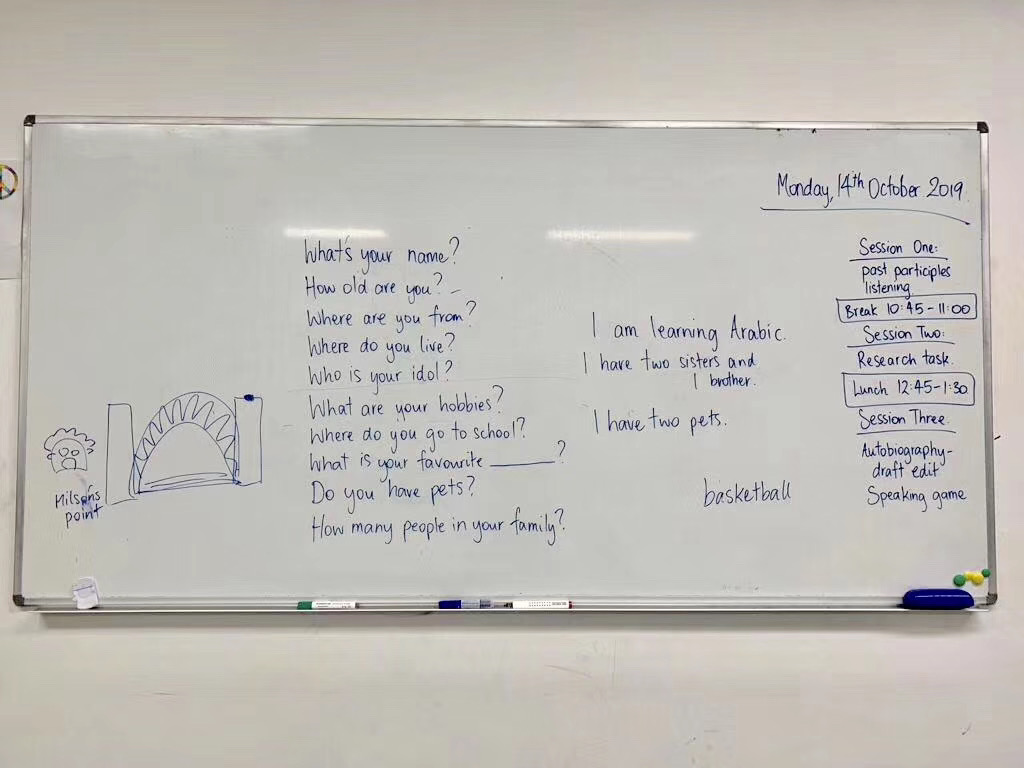 Monday, 14th October 2019.
What's your name?
How old are you?
Where are you from?
Where do you live?
Who is your idol?
What are your hobbies?
Where do you go to school?
What is your favourite ______?
Do you have pets?
How many people in your family?
Milsons
point
I am learning Arabic.
I have two sisters and
1 brother.
I have two pets.
basketball
Session One:
past participles
listening
Break 10:45-11:00
Session Two:
Research task.
Lunch 12:45-1:30
Session Three.
Autobiography-
draft edit
Speaking game